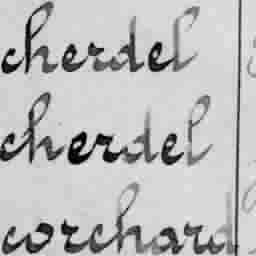 cherdel
cherdel
corchard